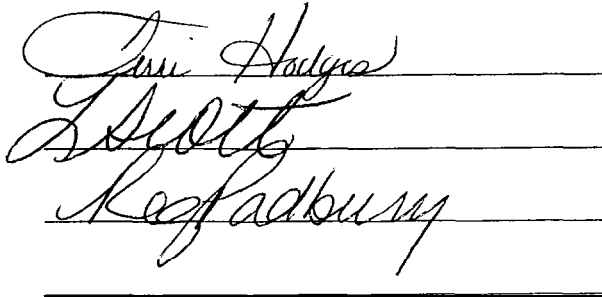 Terri Hodges
L Scott
Reg Padbury